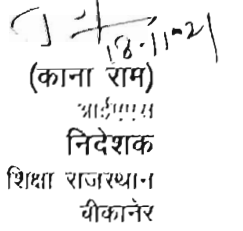 18-11-21
(काना राम)
आईएएस
निदेशक
शिक्षा राजस्थान
बीकानेर